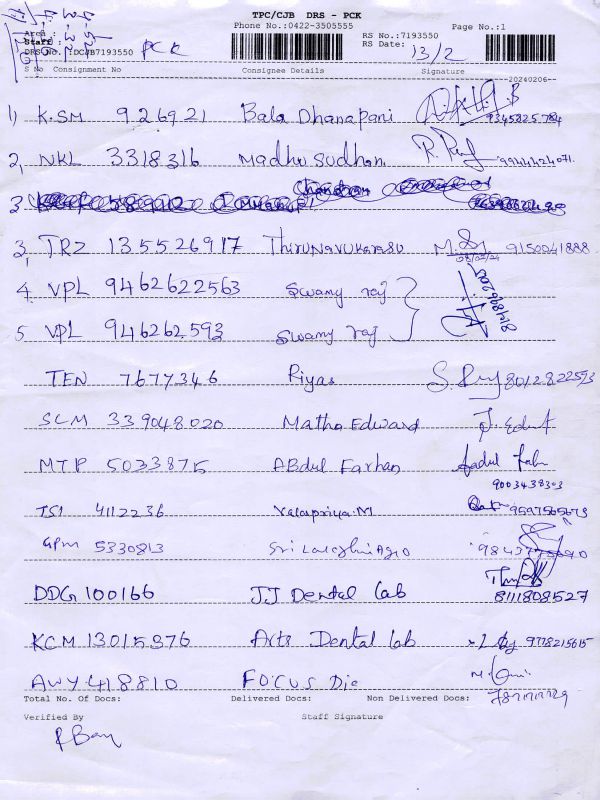 TPC/CJB DRS - PCK
Phone No.:0422-3505555
Area :
Staff :
DRS No.:DCJB7193550 PCK
RS No.:7193550
RS Date: 13/2
Page No.:1
S No Consignment No Consignee Details Signature
20240206
1) KSM 926921 Bala Dhanapani 9345825784
2, NKL 3318316 Madhu Sudhan 9944424071
3
3, TRZ 135526917 Thirunavukarasu 9150041888
4. VPL 9462622563 Swamy raj
5. VPL 946262593 Swamy raj
TEN 7677346 Riyas 8012822593
SLM 339048020 Matha Edward
MTP 5023875 Abdul Farhan
9003438303
TSI 4112236 Valapriya.M 9597565673
GPM 5330813
DDG 100166 JJ Dental Lab 8111808527
KCM 13015376 Arts Dental Lab 9778215615
AWY 418810 FOCUS Die
Total No. Of Docs: Delivered Docs: Non Delivered Docs:
Verified By Staff Signature